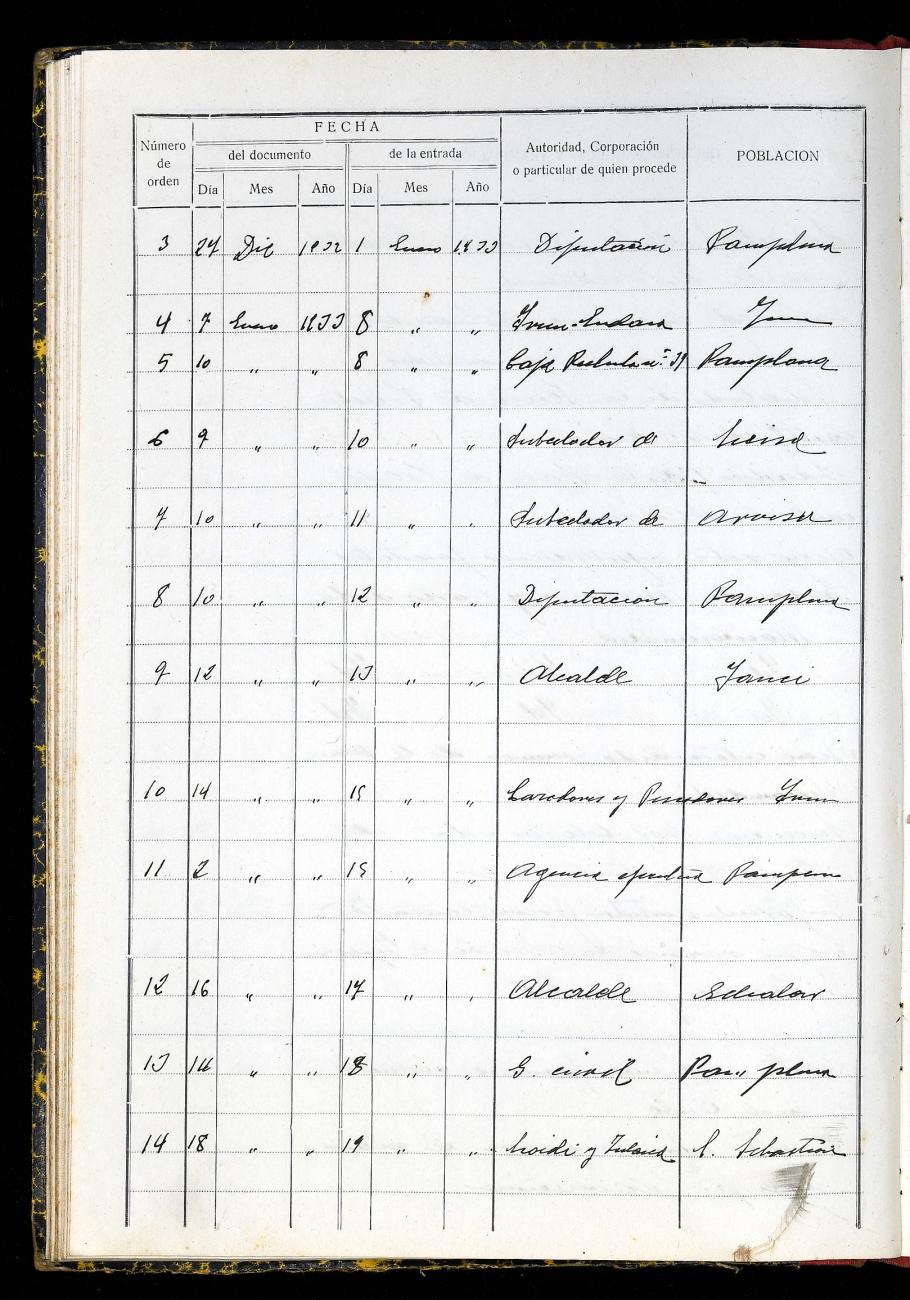 FECHA
Número de orden | del documento | de la entrada | Autoridad, Corporación o particular de quien procede | POBLACION
Día | Mes | Año | Día | Mes | Año
3 | 27 | Dic | 1932 | 1 | Enero | 1933 | Diputación | Pamplona
4 | 7 | Enero | 1933 | 8 | " | " | Irun-Endara | Irun
5 | 10 | " | " | 8 | " | " | Caja Recluta nº 39 | Pamplona
6 | 9 | " | " | 10 | " | " | Subcelador de | Lesaca
7 | 10 | " | " | 11 | " | " | Subcelador de
8 | 10 | " | " | 12 | " | " | Diputación | Pamplona
9 | 12 | " | " | 13 | " | " | Alcalde | Yanci
10 | 14 | " | " | 15 | " | " | Cazadores y Pescadores | Irun
11 | 2 | " | " | 15 | " | " | Agencia ejecutiva | Pampna
12 | 16 | " | " | 17 | " | " | Alcalde | Echalar
13 | 14 | " | " | 18 | " | " | G. civil | Pamplona
14 | 18 | " | " | 19 | " | " | y | S. Sebastian